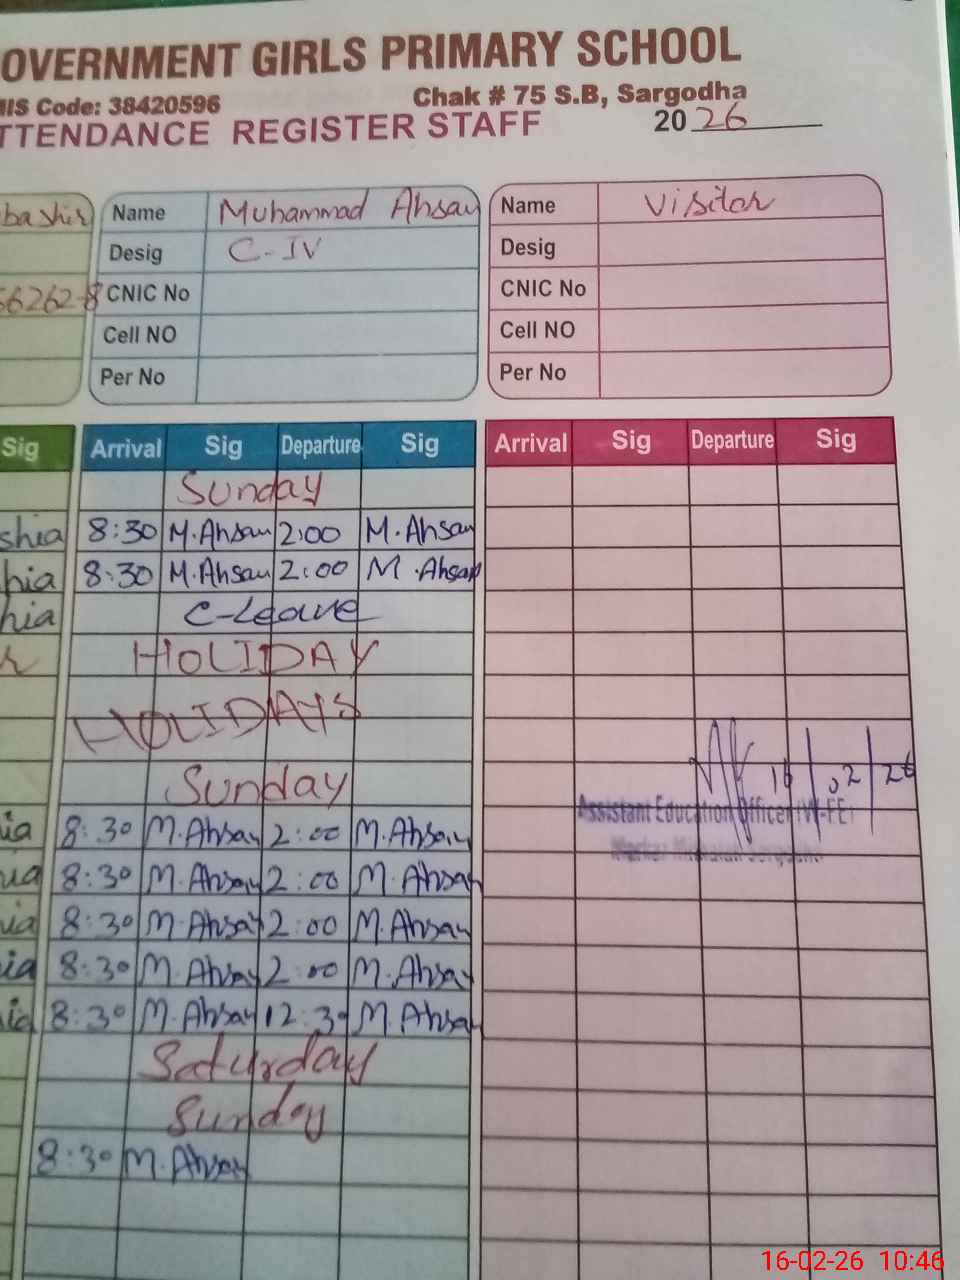 OVERNMENT GIRLS PRIMARY SCHOOL
MIS Code: 38420596 Chak # 75 S.B, Sargodha
TTENDANCE REGISTER STAFF 2026
bashir Name Muhammad Ahsan Name Visitor
Desig C-IV Desig
66262-8 CNIC No CNIC No
Cell NO Cell NO
Per No Per No
Sig Arrival Sig Departure Sig Arrival Sig Departure Sig
Sunday
shia 8:30 M.Ahsan 2:00 M.Ahsan
hia 8:30 M.Ahsan 2:00 M.Ahsan
hia C-Leave
HOLIDAY
HOLIDAYS
Sunday 16/02/26
Assistant Education Officer (W-EE)
Markaz Sargodha
ia 8:30 M.Ahsan 2:00 M.Ahsan
ia 8:30 M.Ahsan 2:00 M.Ahsan
ia 8:30 M.Ahsan 2:00 M.Ahsan
ia 8:30 M.Ahsan 2:00 M.Ahsan
ia 8:30 M.Ahsan 12:30 M.Ahsan
Saturday
Sunday
8:30 M.Ahsan
16-02-26 10:46